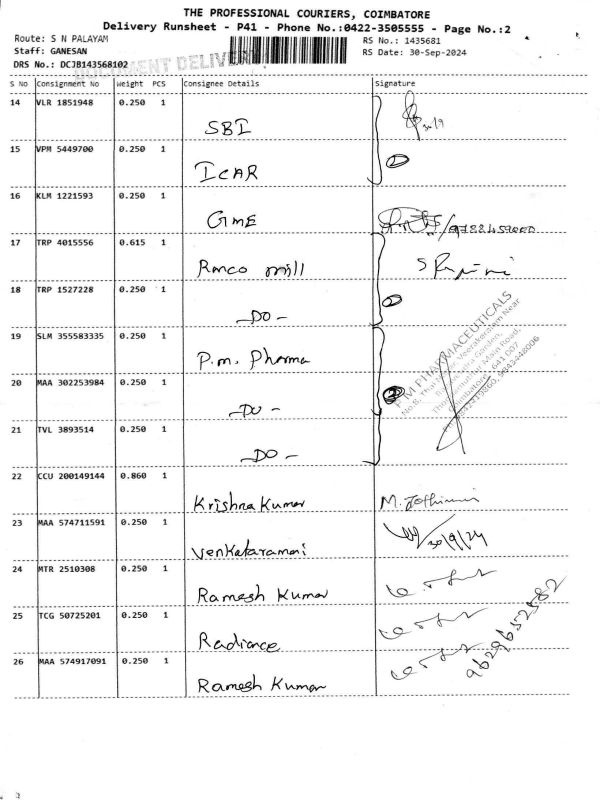 THE PROFESSIONAL COURIERS, COIMBATORE
Delivery Runsheet - P41 - Phone No.:0422-3505555 - Page No.:2
Route: S N PALAYAM
RS No.: 1435681
Staff: GANESAN
RS Date: 30-Sep-2024
DRS No.: DCJB143568102
DOCUMENT DELIVERY
S No Consignment No Weight PCS Consignee Details Signature
14 VLR 1851948 0.250 1
SBI 30/9
15 VPM 5449700 0.250 1
ICAR 2
16 KLM 1221593 0.250 1
GME
17 TRP 4015556 0.615 1
Ramco mill
18 TRP 1527228 0.250 1
-DO- 2
19 SLM 355583335 0.250 1
P.M. Pharma
20 MAA 302253984 0.250 1
-DO-
21 TVL 3893514 0.250 1
-DO-
P M PHARMACEUTICALS
22 CCU 200149144 0.860 1
Krishna Kumar M.
23 MAA 574711591 0.250 1
Venkataramani 30/9/24
24 MTR 2510308 0.250 1
Ramesh Kumar
25 TCG 50725201 0.250 1
Radiance
26 MAA 574917091 0.250 1
Ramesh Kumar
9629652582